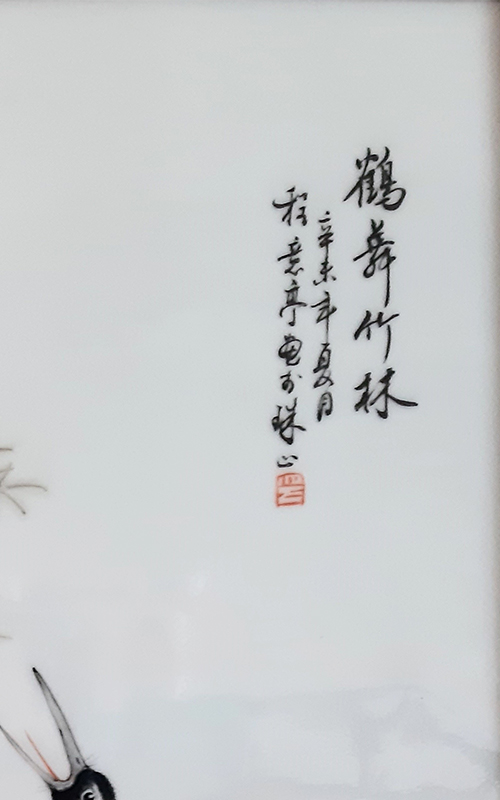 鶴舞竹林
辛未年夏月
程意亭画於珠山